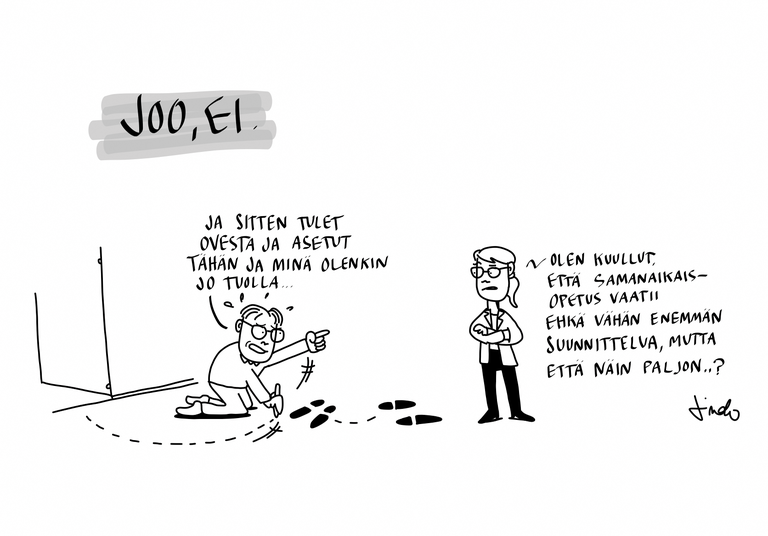 JOO, EI.
JA SITTEN TULET
OVESTA JA ASETUT
TÄHÄN JA MINÄ OLENKIN
JO TUOLLA...
OLEN KUULLUT,
ETTÄ SAMANAIKAIS-
OPETUS VAATII
EHKÄ VÄHÄN ENEMMÄN
SUUNNITTELUA, MUTTA
ETTÄ NÄIN PALJON..?